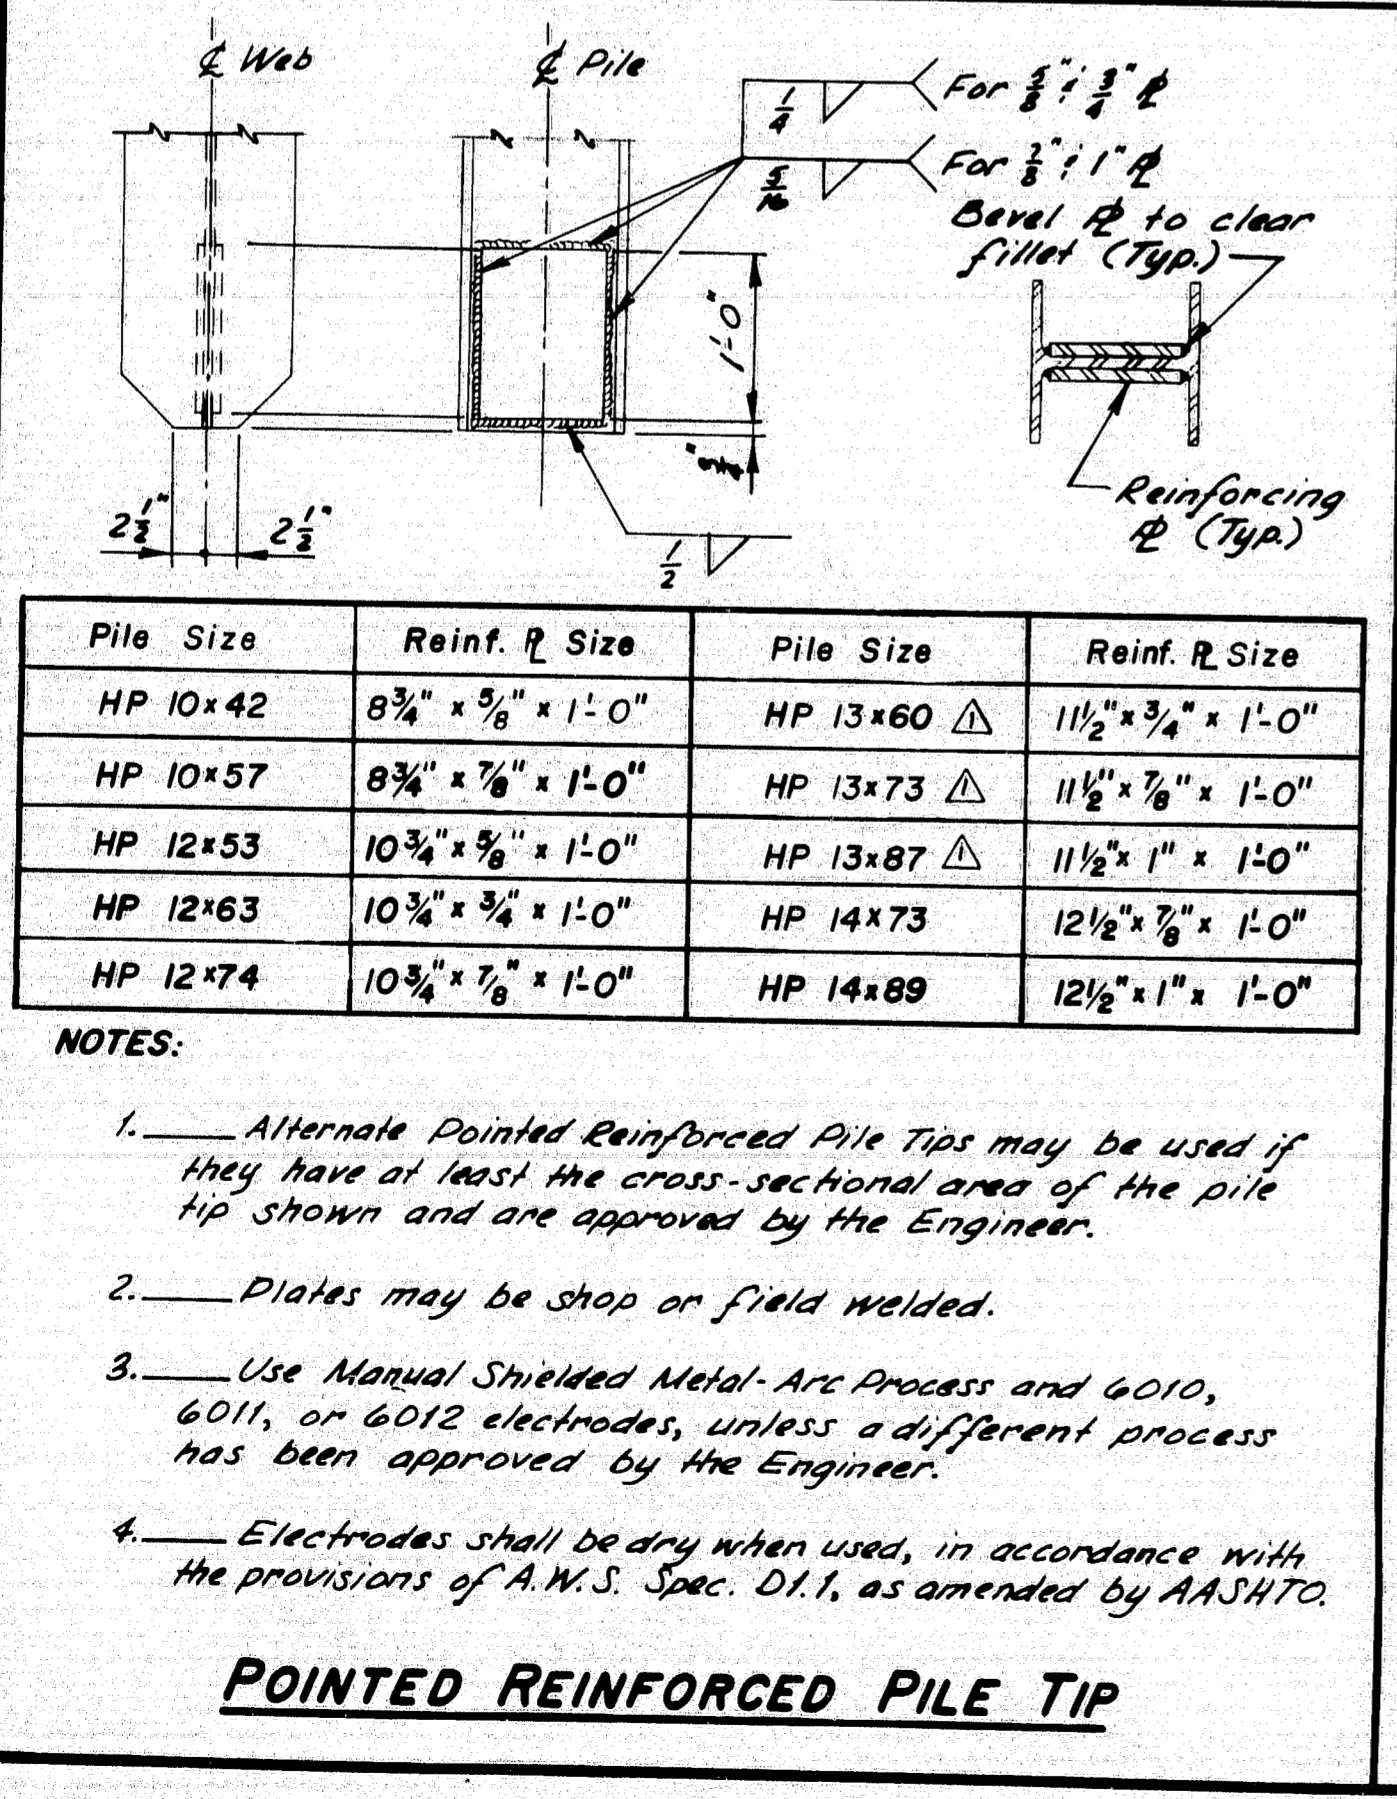 ℄ Web
℄ Pile
1/4 For 5/8" & 3/4" ℞
5/16 For 7/8" & 1" ℞
Bevel ℞ to clear
fillet (Typ.)
1'-0"
3/4"
Reinforcing
℞ (Typ.)
2 1/2" 2 1/2"
1/2
Pile Size Reinf. ℞ Size Pile Size Reinf. ℞ Size
HP 10x42 8 3/4" x 5/8" x 1'-0" HP 13x60 △1 11 1/2" x 3/4" x 1'-0"
HP 10x57 8 3/4" x 7/8" x 1'-0" HP 13x73 △1 11 1/2" x 7/8" x 1'-0"
HP 12x53 10 3/4" x 5/8" x 1'-0" HP 13x87 △1 11 1/2" x 1" x 1'-0"
HP 12x63 10 3/4" x 3/4" x 1'-0" HP 14x73 12 1/2" x 7/8" x 1'-0"
HP 12x74 10 3/4" x 7/8" x 1'-0" HP 14x89 12 1/2" x 1" x 1'-0"
NOTES:
1.____Alternate Pointed Reinforced Pile Tips may be used if
they have at least the cross-sectional area of the pile
tip shown and are approved by the Engineer.
2.____Plates may be shop or field welded.
3.____Use Manual Shielded Metal-Arc Process and 6010,
6011, or 6012 electrodes, unless a different process
has been approved by the Engineer.
4.____Electrodes shall be dry when used, in accordance with
the provisions of A.W.S. Spec. D1.1, as amended by AASHTO.
POINTED REINFORCED PILE TIP